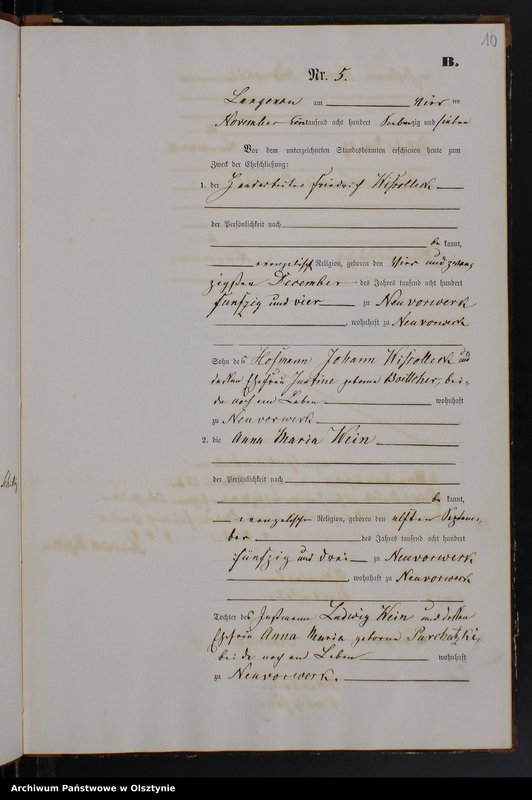 10
B.
Nr. 5.
Langenau am Vier ten
November Eintausend acht hundert Siebenzig und sieben
Vor dem unterzeichneten Standesbeamten erschienen heute zum
Zweck der Eheschließung:
1. der Handarbeiter Friedrich
der Persönlichkeit nach
be kannt,
evangelischer Religion, geboren den Vier und zwan-
zigsten December des Jahres tausend acht hundert
fünfzig und vier zu Neuvorwerk
, wohnhaft zu Neuvorwerk
Sohn des Hofmann Johann und
dessen Ehefrau Justine geborne Boettcher, bei-
de noch am Leben wohnhaft
zu Neuvorwerk
2. die Anna Maria Klein
der Persönlichkeit nach
be kannt,
evangelischer Religion, geboren den elften Septem-
ber des Jahres tausend acht hundert
fünfzig und drei zu Neuvorwerk
, wohnhaft zu Neuvorwerk
Tochter des Instmann Ludwig Klein und dessen
Ehefrau Anna Maria geborne
beide noch am Leben wohnhaft
zu Neuvorwerk.
Archiwum Państwowe w Olsztynie